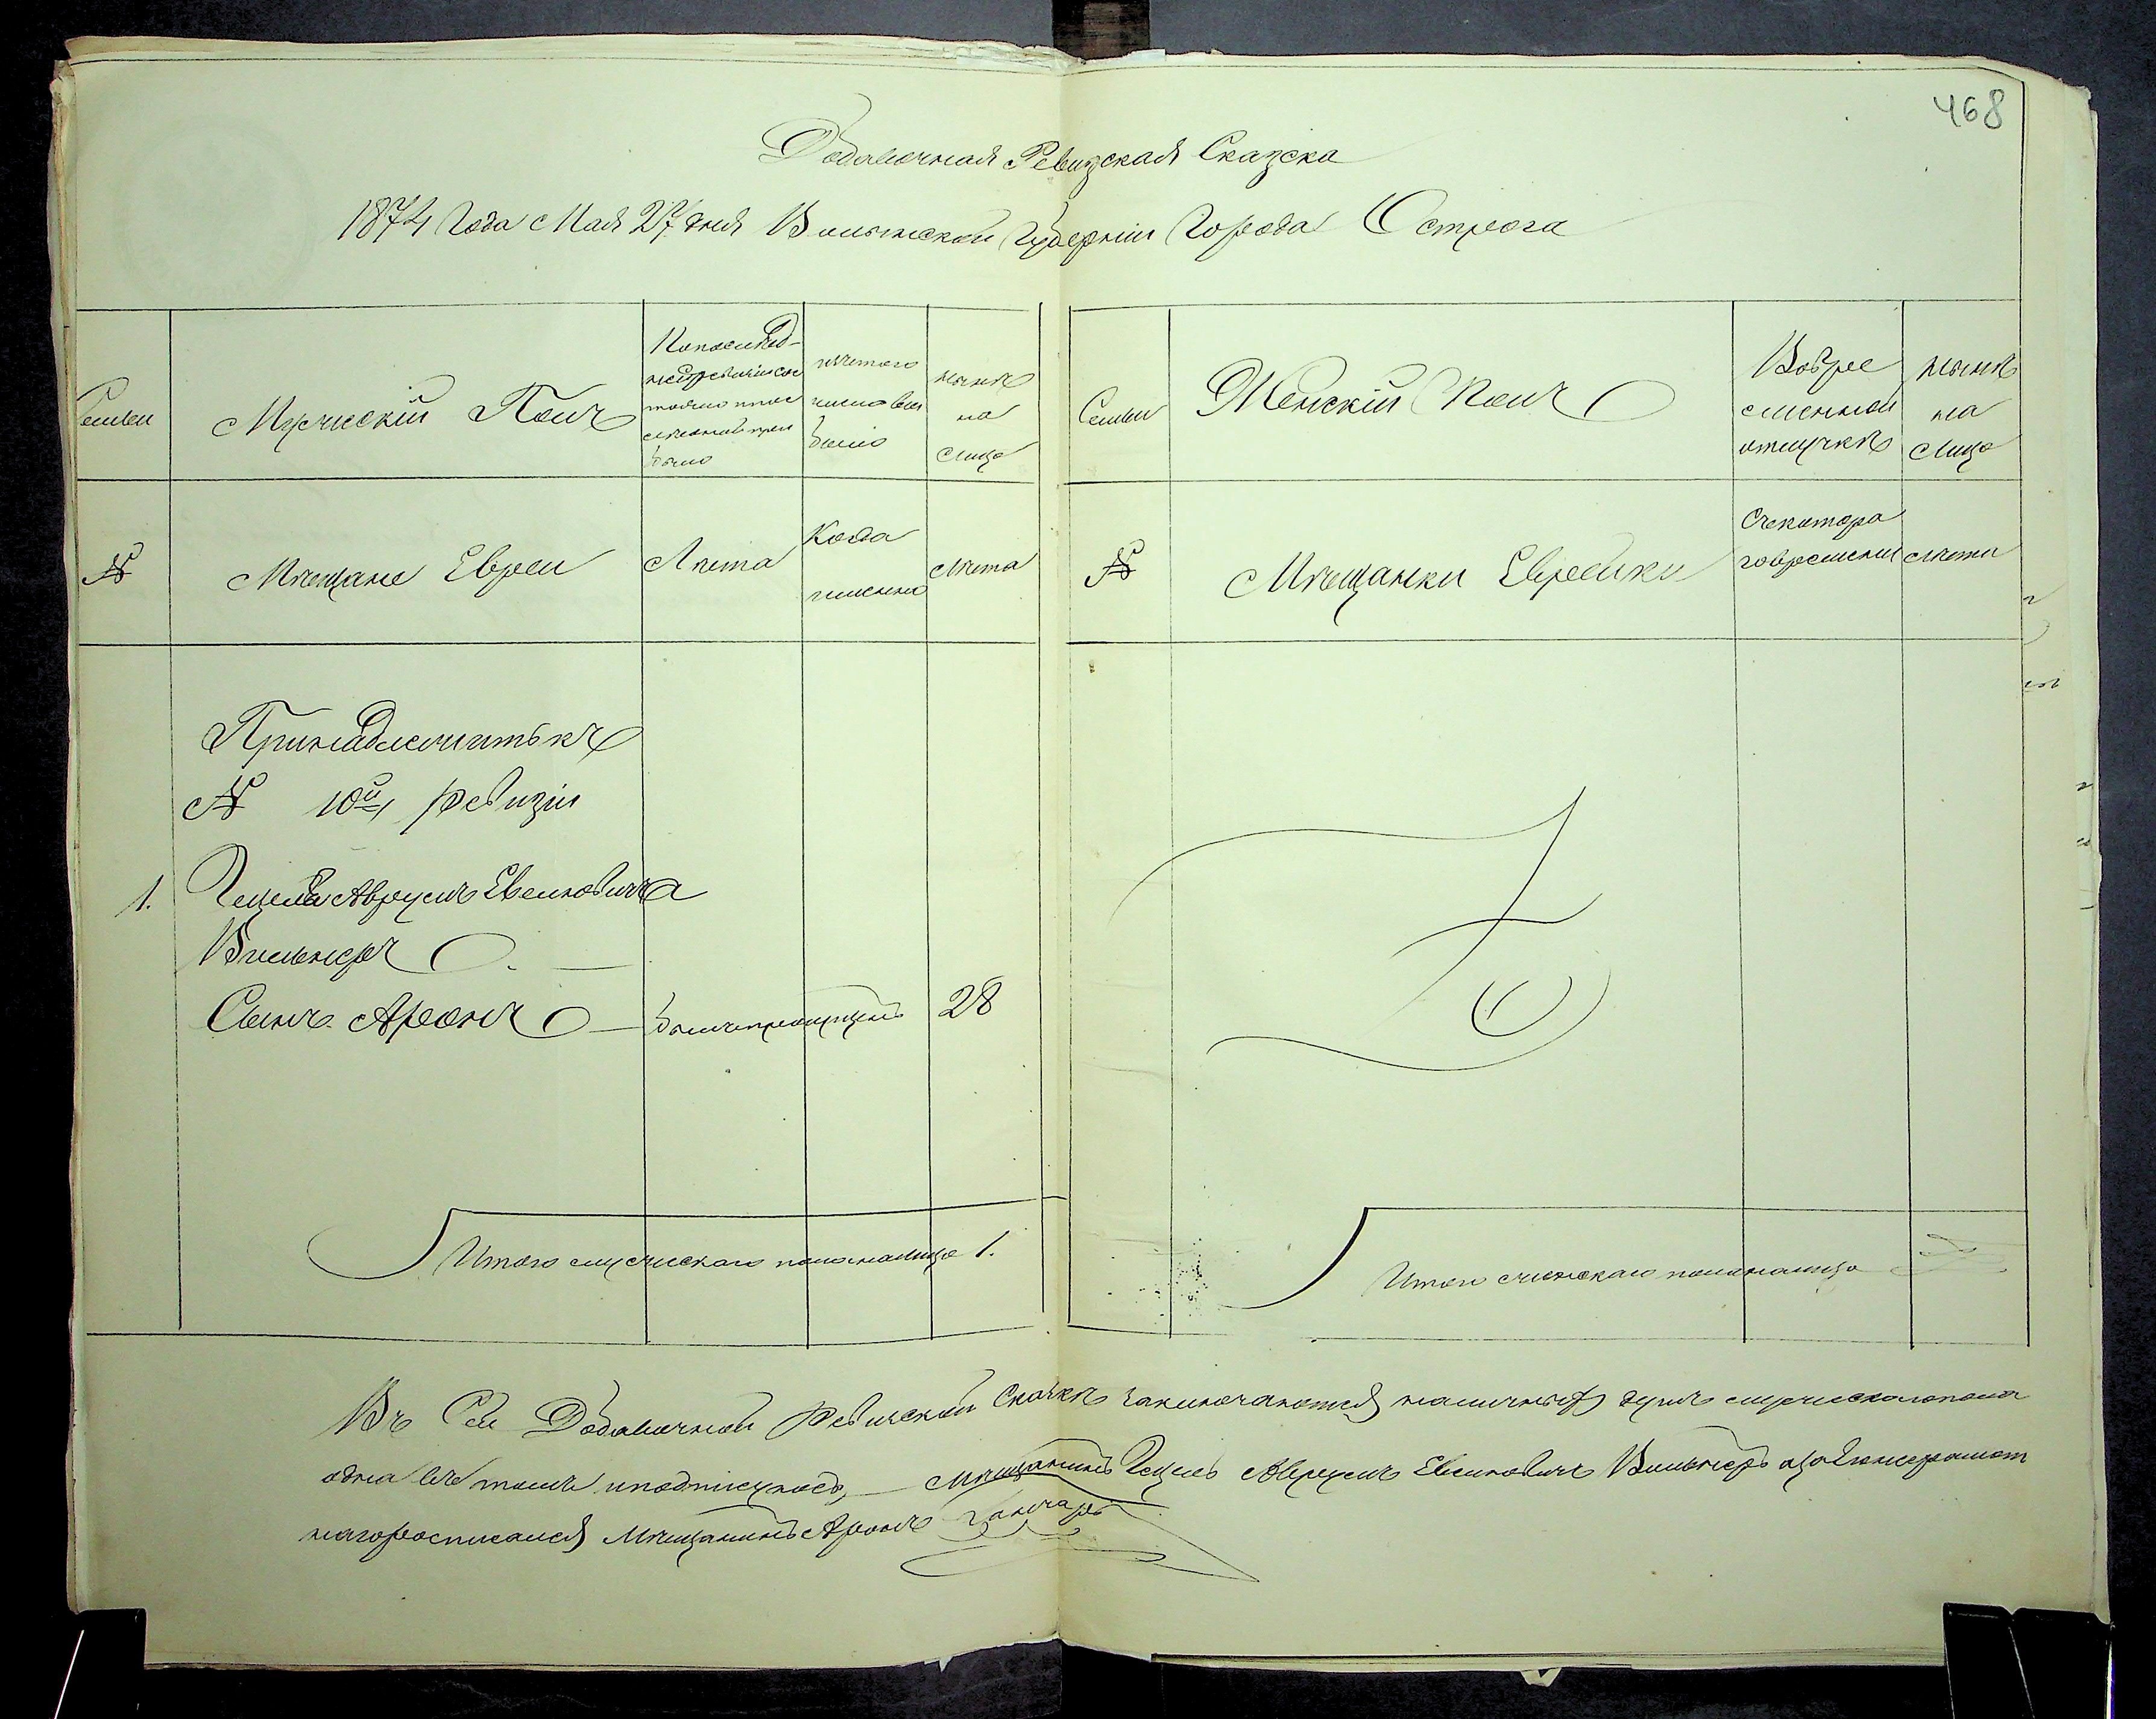 468
Добавочная Ревизская Сказка
1874 Года Мая 27 дня Волынской Губерніи Города Острога
Семьи
Мужескій Полъ
По послѣд-
ней ревизіи сос
тояло и пос
лѣ оной при
было
изъ того
числа вы
было
нынѣ
на
лицо
Семьи
Женскій Полъ
Вовре
менной
отлучкѣ
нынѣ
на
лицо
№
Мѣщане Евреи
Лѣта
Когда
именно
Лѣта
№
Мѣщанки Еврейки
Съ котора
го времени
Лѣта
Принадлежитъ къ
№ 10й ревизіи
1. Гецеля Аврумъ Евелковича
Вильнеръ
Сынъ Аронъ былъ пропущенъ 28
Итого мужескаго пола налицо 1.
Итого женскаго пола налицо
Въ Сей Добавочной Ревизской Сказкѣ заключаются наличныхъ душъ мужескаго пола
одна въ томъ и подписуюсь, Мѣщанинъ Гецель Аврумъ Евелковичъ Вильнеръ а за его неграмот
наго росписался Мѣщанинъ Аронъ Ганчаръ